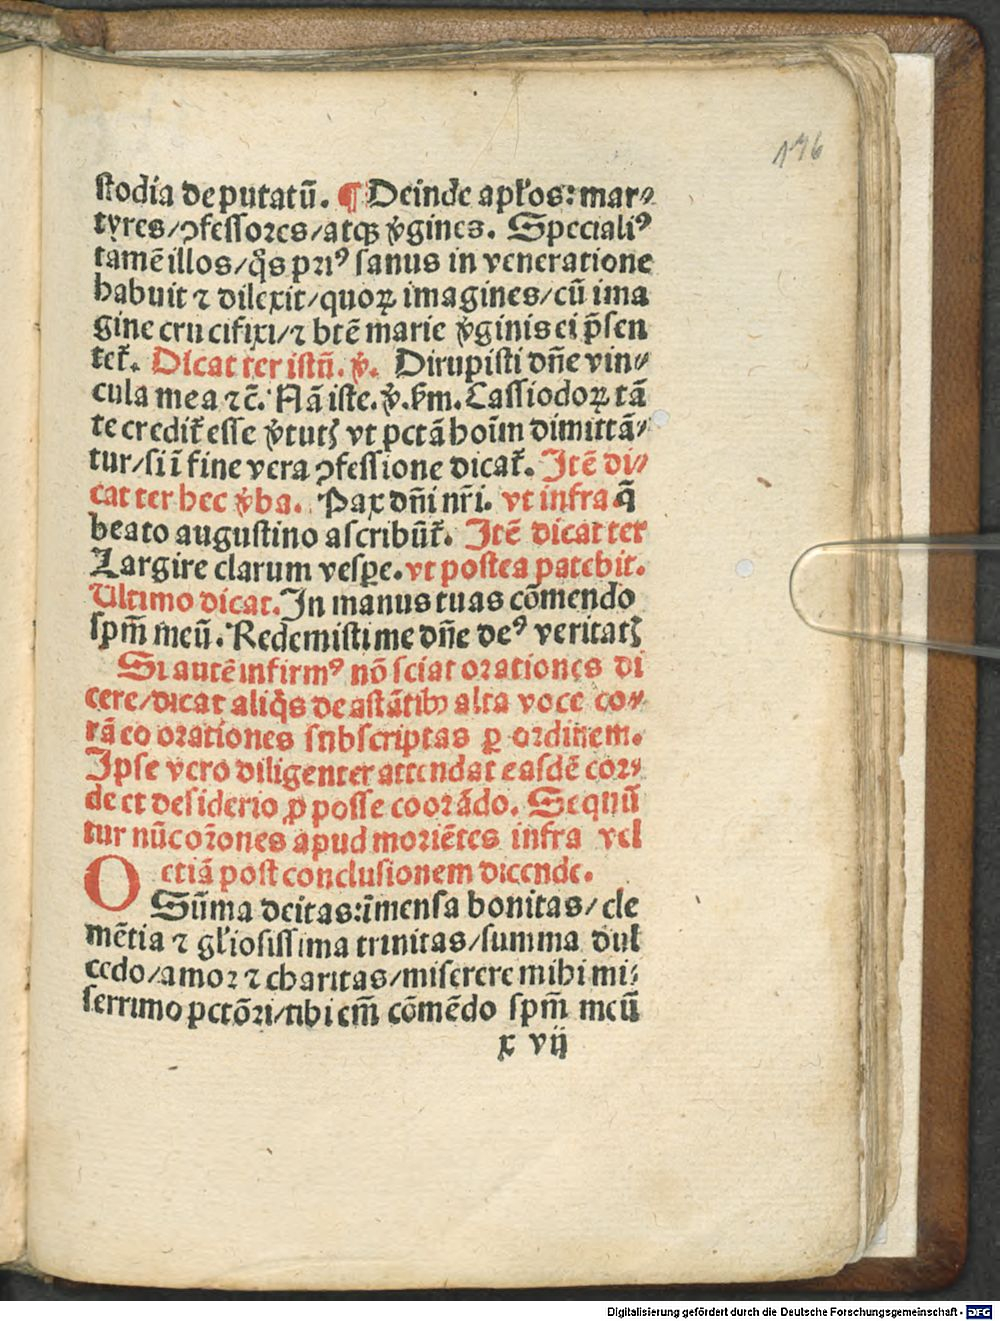 176
stodia deputatū. ¶ Deinde apl̄os: mar⸗
tyres/ ꝯfessores/ atqꝫ v̓gines. Speciali⁹
tamē illos/ q̄s pri⁹ sanus in veneratione
habuit ⁊ dilexit/ quoꝝ imagines/ cū ima
gine crucifixi/ ⁊ btē marie v̓ginis ei p̄sen
tet̄. Dicat ter istū. v̓. Dirupisti dn̄e vin⸗
cula mea ⁊c̄. Nā iste. v̓. ẜm. Cassiodoꝝ tā
te credit̄ esse v̓tutꝭ vt pctā hoīm dimittā⸗
tur/ si ī fine vera ꝯfessione dicat̄. Itē di⸗
cat ter hec v̓ba. Pax dn̄i nr̄i. vt infra q̄
beato augustino ascribūt̄. Itē dicat ter
Largire clarum vesꝑe. vt postea patebit.
Ultimo dicat. In manus tuas cōmendo
spm̄ meū. Redemisti me dn̄e de⁹ veritatꝭ
Si autē infirm⁹ nō sciat orationes di
cere/ dicat aliq̄s de astātibꝰ alta voce co⸗
rā eo orationes subscriptas ꝑ ordinem.
Ipse vero diligenter attendat easdē cor⸗
de et desiderio ꝓ posse coorādo. Sequū
tur nūc or̄ones apud moriētes infra vel
etiā post conclusionem dicende.
O Sūma deitas: īmensa bonitas/ cle
mētia ⁊ gl̄iosissima trinitas/ summa dul
cedo/ amor ⁊ charitas/ miserere mihi mi⸗
serrimo pctōri/ tibi em̄ cōmēdo spm̄ meū
x vij
Digitalisierung gefördert durch die Deutsche Forschungsgemeinschaft - DFG